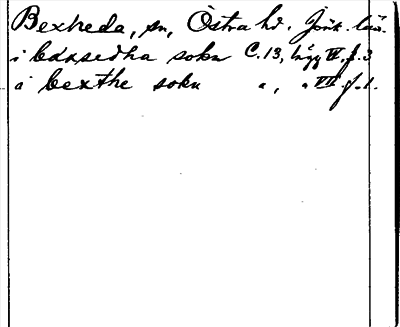 Bexheda, sn, Östra hd. Jönk. län.
i bäxsedha sokn C.13, lägg VI.f.3
i bexthe sokn „ , „ VII.f.1.